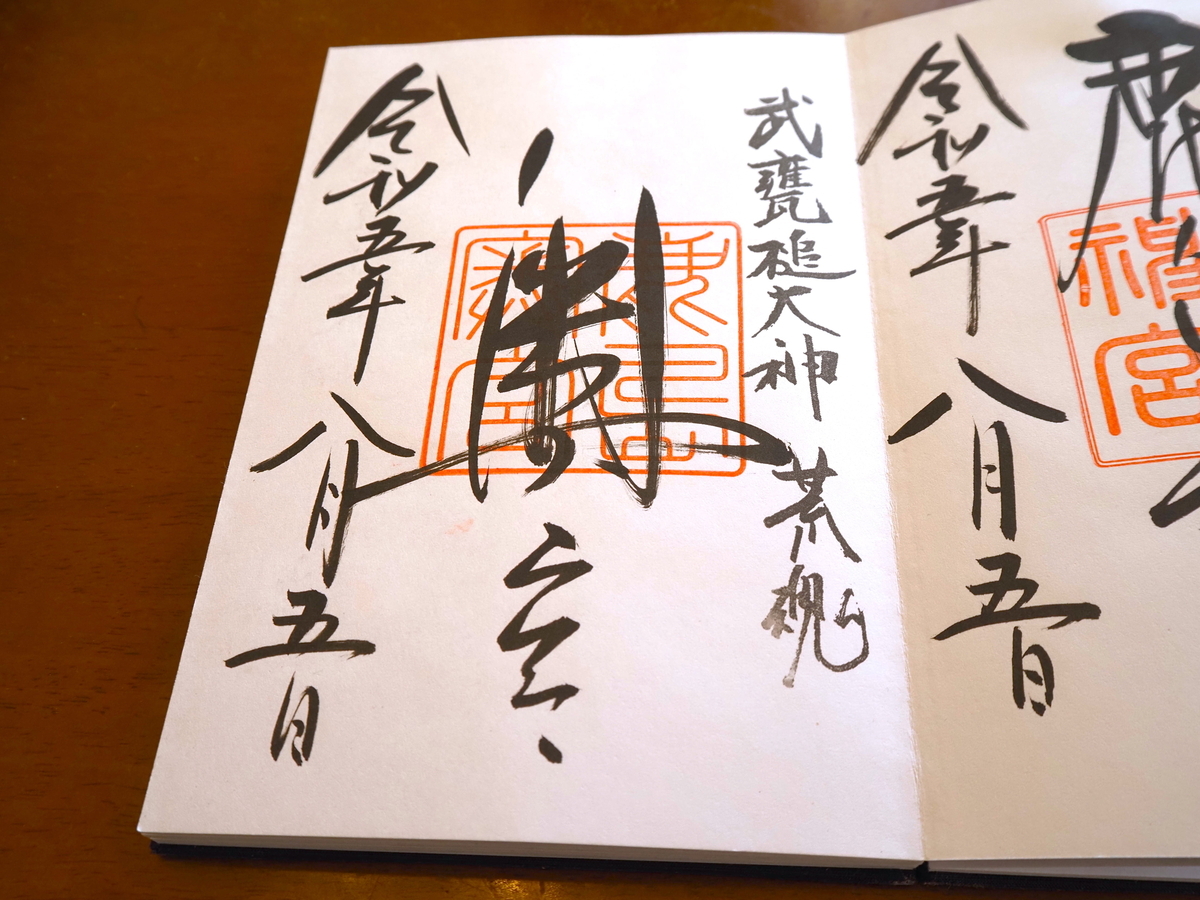 鹿
神宮
令和五年八月五日
武甕槌大神 荒魂
奥宮
令和五年 八月五日